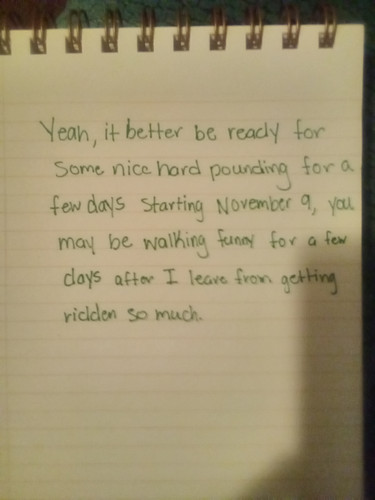 Yeah, it better be ready for
some nice hard pounding for a
few days starting November 9, you
may be walking funny for a few
days after I leave from getting
ridden so much.